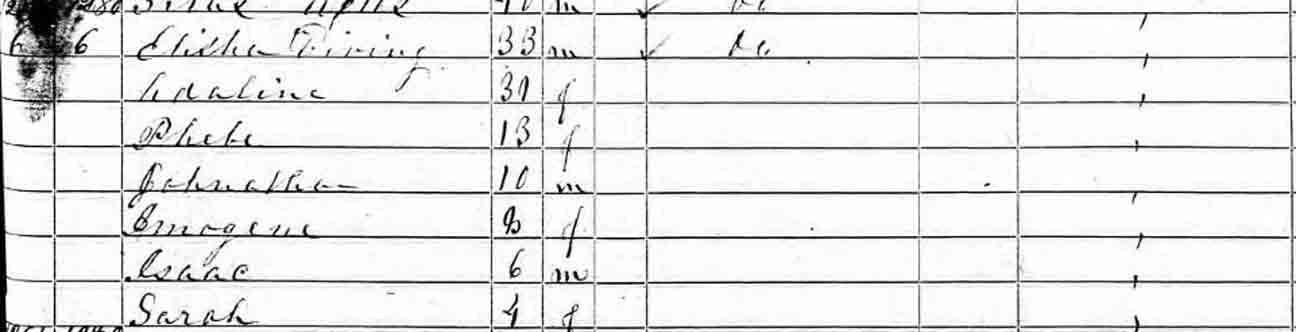 40 m ✓ do
6 6 Elisha 33 m ✓ do
Adaline 31 f
Phebe 13 f
Johnathan 10 m
Emogene 8 f
Isaac 6 m
Sarah 4 f